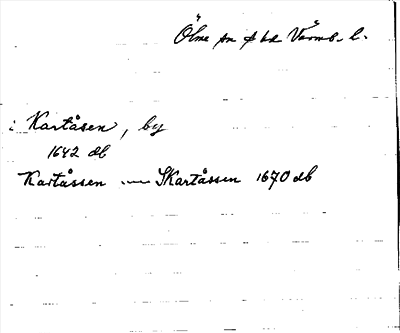 Ölme sn o hd Värml. l.
i Kartåsen, by
1642 db
Kartåssen — SKartåssen 1670 db